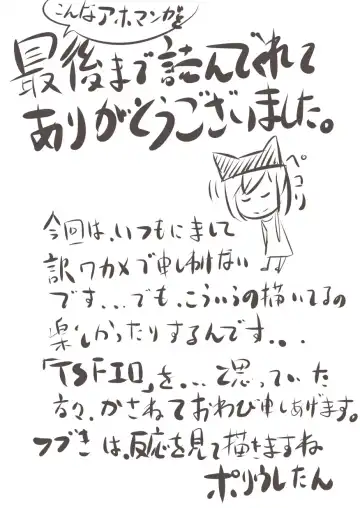 こんなアホマンガを
最後まで読んでくれて
ありがとうございました。
ペコリ
今回は、いつもにまして
訳ワカメで申しわけない
です...でも、こういうの描いてるの
楽しかったりするんです...
「TSFIO」を...と思っていた
方々、かさねておわび申しあげます。
つづきは、反応を見て描きますね
ポリうしたん